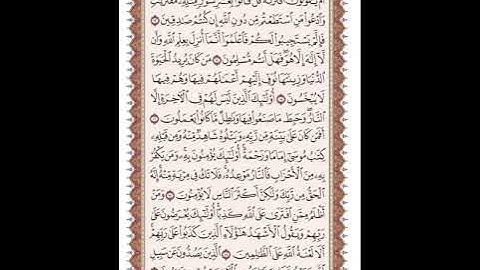 أَمْ يَقُولُونَ ٱفْتَرَىٰهُ قُلْ فَأْتُوا۟ بِعَشْرِ سُوَرٍ مِّثْلِهِۦ مُفْتَرَيَـٰتٍ
وَٱدْعُوا۟ مَنِ ٱسْتَطَعْتُم مِّن دُونِ ٱللَّهِ إِن كُنتُمْ صَـٰدِقِينَ ١٣
فَإِلَّمْ يَسْتَجِيبُوا۟ لَكُمْ فَٱعْلَمُوٓا۟ أَنَّمَآ أُنزِلَ بِعِلْمِ ٱللَّهِ وَأَن
لَّآ إِلَـٰهَ إِلَّا هُوَ فَهَلْ أَنتُم مُّسْلِمُونَ ١٤ مَن كَانَ يُرِيدُ ٱلْحَيَوٰةَ
ٱلدُّنْيَا وَزِينَتَهَا نُوَفِّ إِلَيْهِمْ أَعْمَـٰلَهُمْ فِيهَا وَهُمْ فِيهَا
لَا يُبْخَسُونَ ١٥ أُو۟لَـٰٓئِكَ ٱلَّذِينَ لَيْسَ لَهُمْ فِى ٱلْـَٔاخِرَةِ إِلَّا
ٱلنَّارُ وَحَبِطَ مَا صَنَعُوا۟ فِيهَا وَبَـٰطِلٌ مَّا كَانُوا۟ يَعْمَلُونَ ١٦
أَفَمَن كَانَ عَلَىٰ بَيِّنَةٍ مِّن رَّبِّهِۦ وَيَتْلُوهُ شَاهِدٌ مِّنْهُ وَمِن قَبْلِهِۦ
كِتَـٰبُ مُوسَىٰٓ إِمَامًا وَرَحْمَةً أُو۟لَـٰٓئِكَ يُؤْمِنُونَ بِهِۦ وَمَن يَكْفُرْ
بِهِۦ مِنَ ٱلْأَحْزَابِ فَٱلنَّارُ مَوْعِدُهُۥ فَلَا تَكُ فِى مِرْيَةٍ مِّنْهُ إِنَّهُ
ٱلْحَقُّ مِن رَّبِّكَ وَلَـٰكِنَّ أَكْثَرَ ٱلنَّاسِ لَا يُؤْمِنُونَ ١٧ وَمَنْ
أَظْلَمُ مِمَّنِ ٱفْتَرَىٰ عَلَى ٱللَّهِ كَذِبًا أُو۟لَـٰٓئِكَ يُعْرَضُونَ عَلَىٰ
رَبِّهِمْ وَيَقُولُ ٱلْأَشْهَـٰدُ هَـٰٓؤُلَآءِ ٱلَّذِينَ كَذَبُوا۟ عَلَىٰ رَبِّهِمْ
أَلَا لَعْنَةُ ٱللَّهِ عَلَى ٱلظَّـٰلِمِينَ ١٨ ٱلَّذِينَ يَصُدُّونَ عَن سَبِيلِ